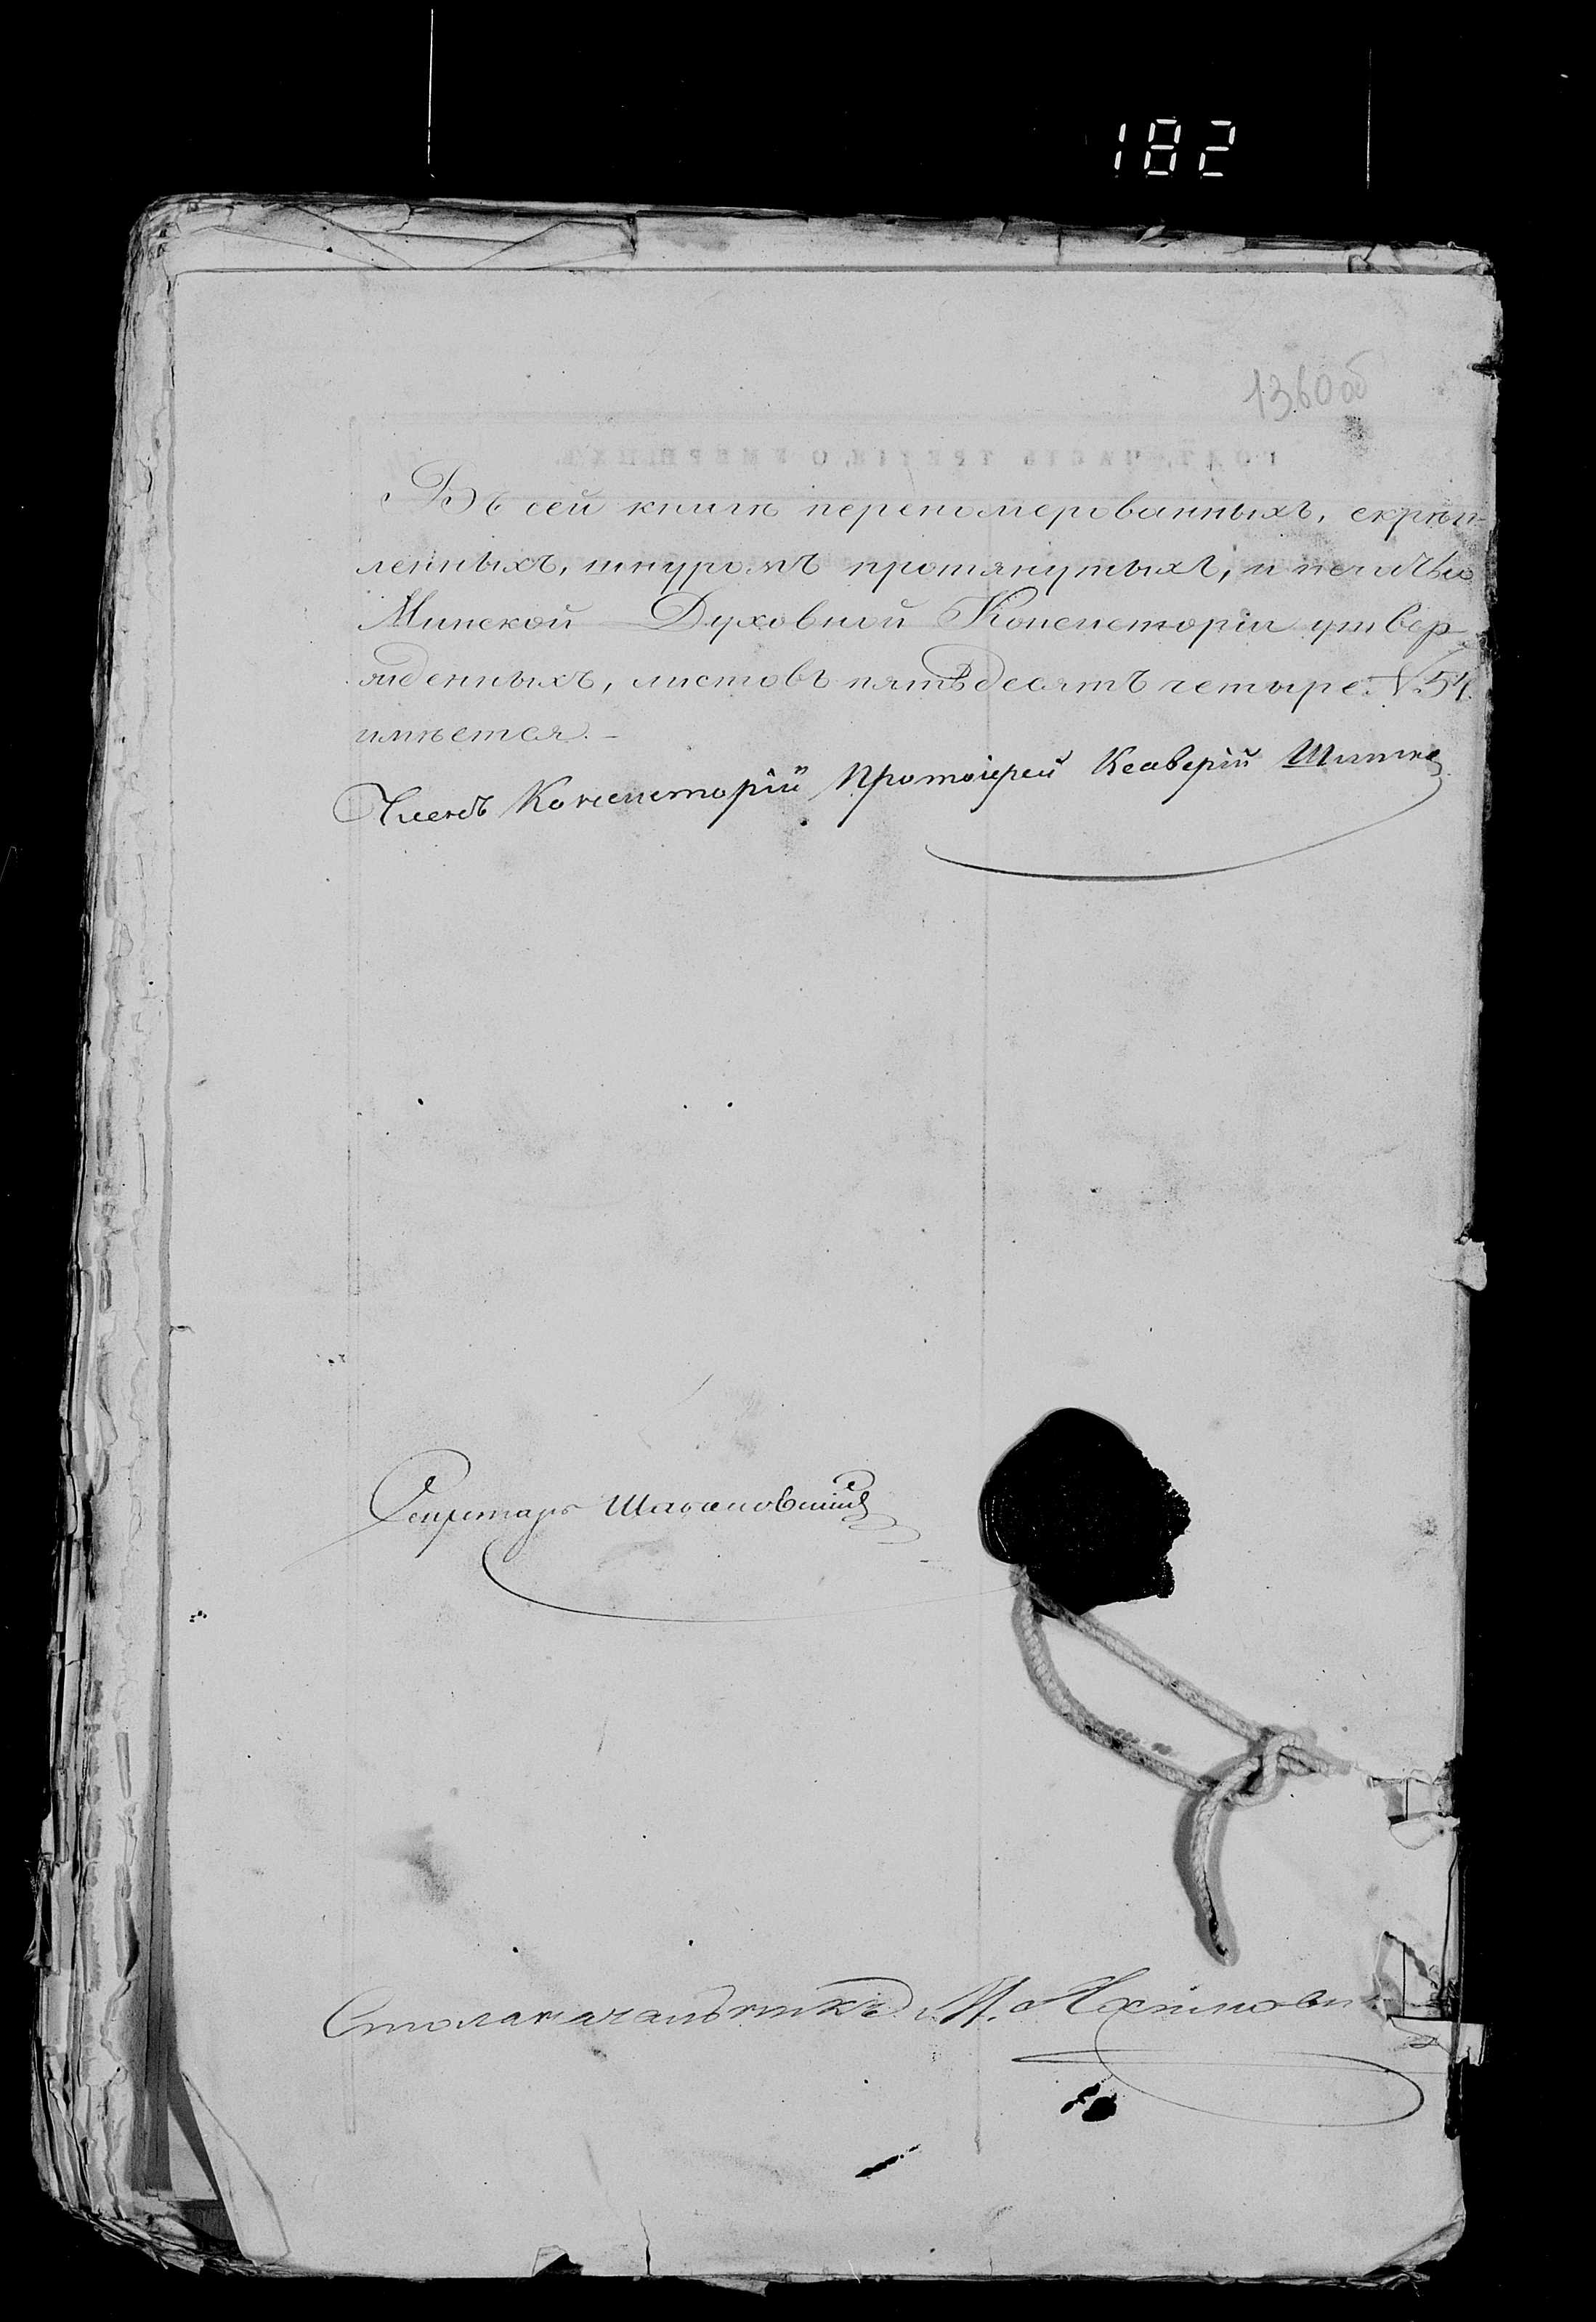 182
1360об
Въ сей книгѣ перепомерованныхъ, скрѣп-
ленныхъ, шнуромъ протянутыхъ, и печатью
Минской Духовной Консисторіи утвер
жденныхъ, листовъ пятьдесятъ четыре. №54.
имѣется.-
Членъ Консисторіи Протоіерей Ксаверій
Секретарь
Столоначальникъ М.